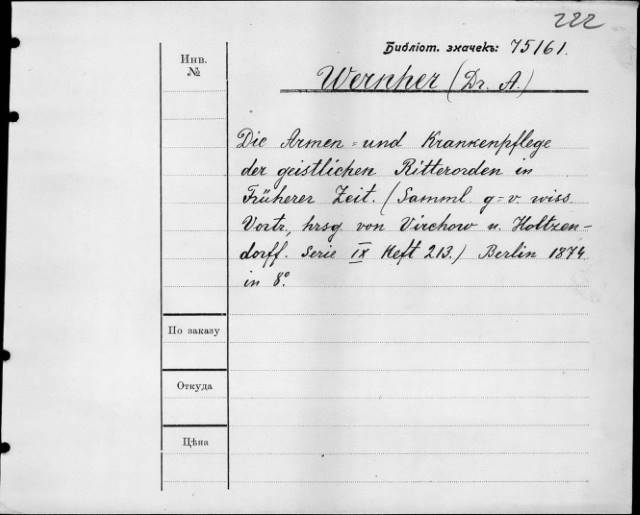 222
Библіот. значекъ: 75161.
Инв.
№
Wernher (Dr. A.)
Die Armen= und Krankenpflege
der geistlichen Ritterorden in
Früherer Zeit. (Samml. g=v. wiss
Vortr, hrsg von Virchow u. Holtzen-
dorff. Serie IX Heft 213.) Berlin 1874.
in 8º.
По заказу
Откуда
Цѣна